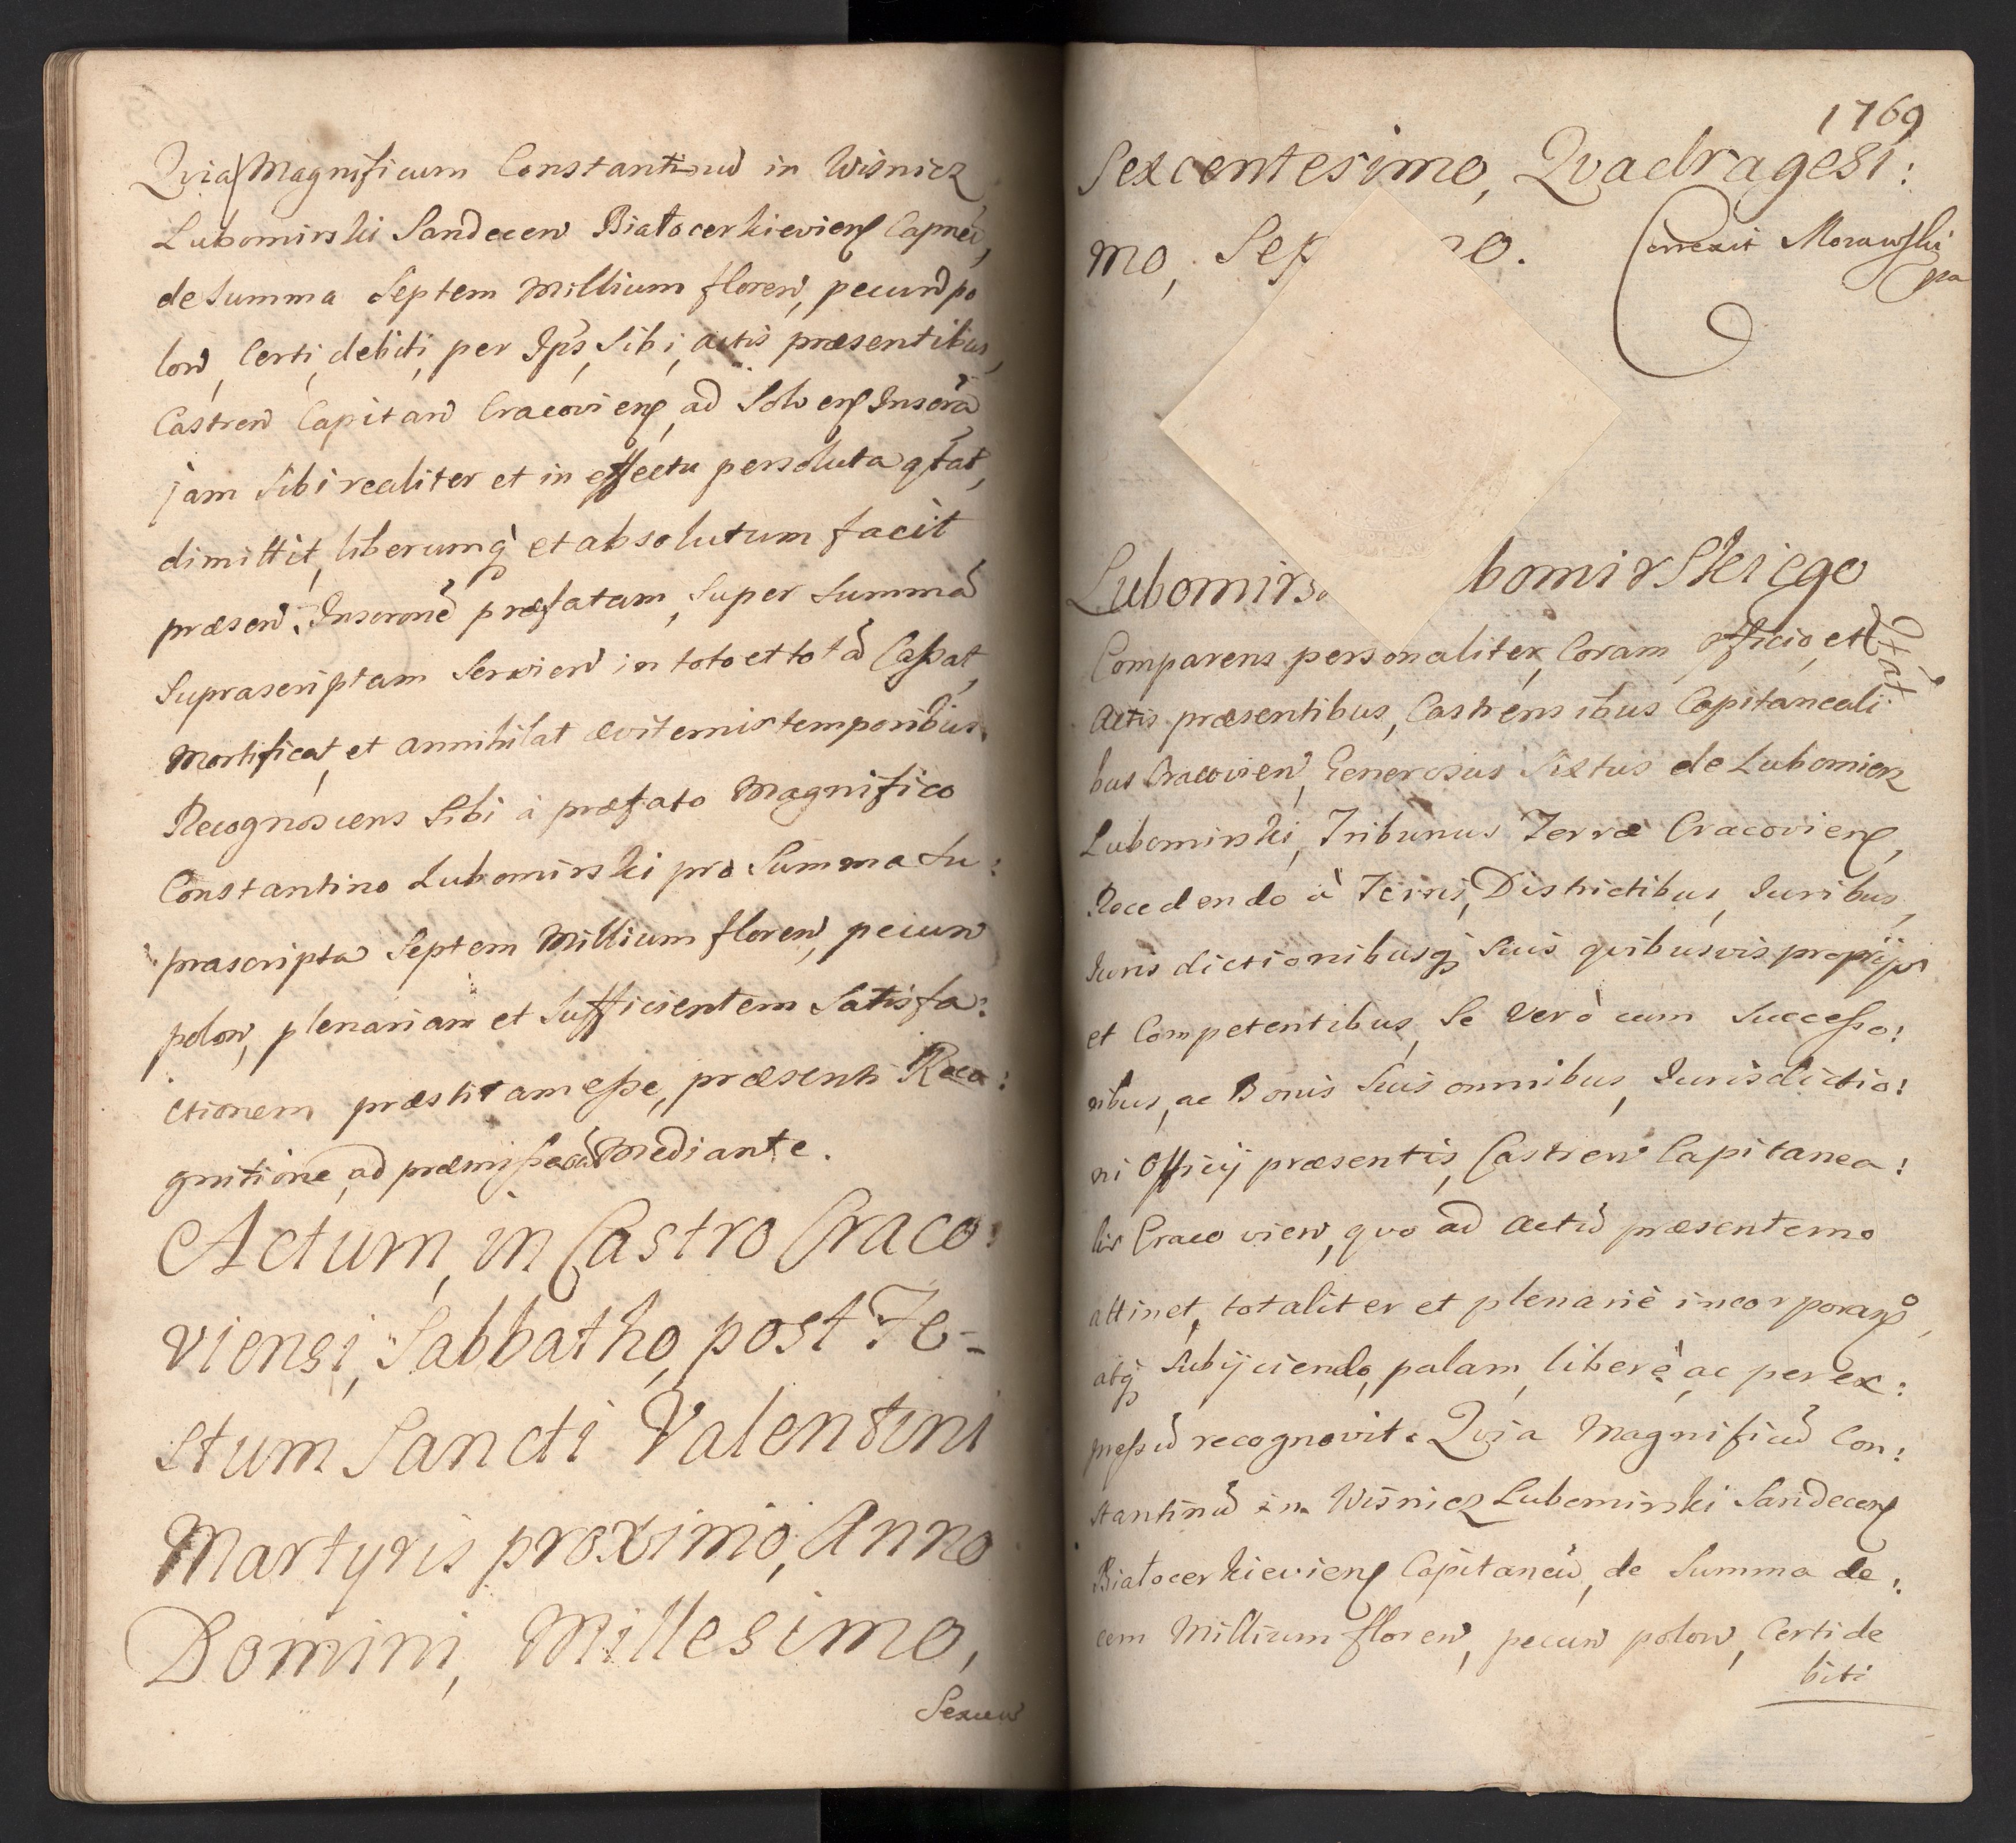 Qvia Magnificum Constantinũ in Wisnicz
Lubomirski Sandecen̄ Białocerkievien̄ Capneũ,
de Summa Septem Millium floren̄, pecun̄ po
lon̄, Certi, debiti, per Ips̄, Sibi, actis præsentibus,
Castren̄ Capitan̄ Cracovien̄, ad Solven̄ Inscrã
jam Sibi realiter et in effectu persoluta qtat,
dimittit, liberumq̀ et absolutum facit
præsen̄. Inscronẽ præfatam, Super Summã
Suprascriptam Servien̄ in toto et totã Caßat,
Mortificat, et annihilat ævitemis temporibus.
Recognoscens Sibi à præfato Magnifico
Constantino Lubomirski pro Summa su:
prascripta Septem Millium floren̄, pecun̄
polon̄, plenariam et Sufficientem Satisfa:
ctionem præstitam eße, præsenti Reco:
gnitione, ad præmißa Mediante.
Actum, in Castro Craco:
viensi, Sabbatho, post Fe-
stum Sancti Valentini
Martyris proximo, Anno
Domini, Millesimo,
Sexcen̄
1769
Sexcentesimo, Qvadragesi:
mo, Sep mo.
Correxit Morawski
Lubomirs bomirSkiego
Qtat
Comparens personaliter, Coram officio, et
Actis præsentibus, Castrensibus Capitaneali
bus Cracovien̄, Generosus Sixtus de Lubomierz
Lubomirski, Tribunus Terræ Cracovien̄,
Recedendo à Terris, Districtibus, Juribus,
Jurisdictionibusq̀ Suis qvibusvis proprijs
et Competentibus, Se Verò cum Succeßo:
ribus, ac Bonis Suis omnibus, Jurisdictio:
ni Officij præsentis, Castren̄ Capitanea:
lis Cracovien̄, qvo ad Actũ præsentem
attinet, totaliter et plenariè incorporanº,
atq̀ Subijciendo, palam, liberè, ac per ex:
preßũ recognovit. Qvia Magnificũ Con:
stantinũ in Wisnicz Lubomirski Sandecen̄
Białocerkievien̄ Capitaneũ, de Summa de:
cem Millium floren̄, pecun̄ polon̄, Certi de
biti